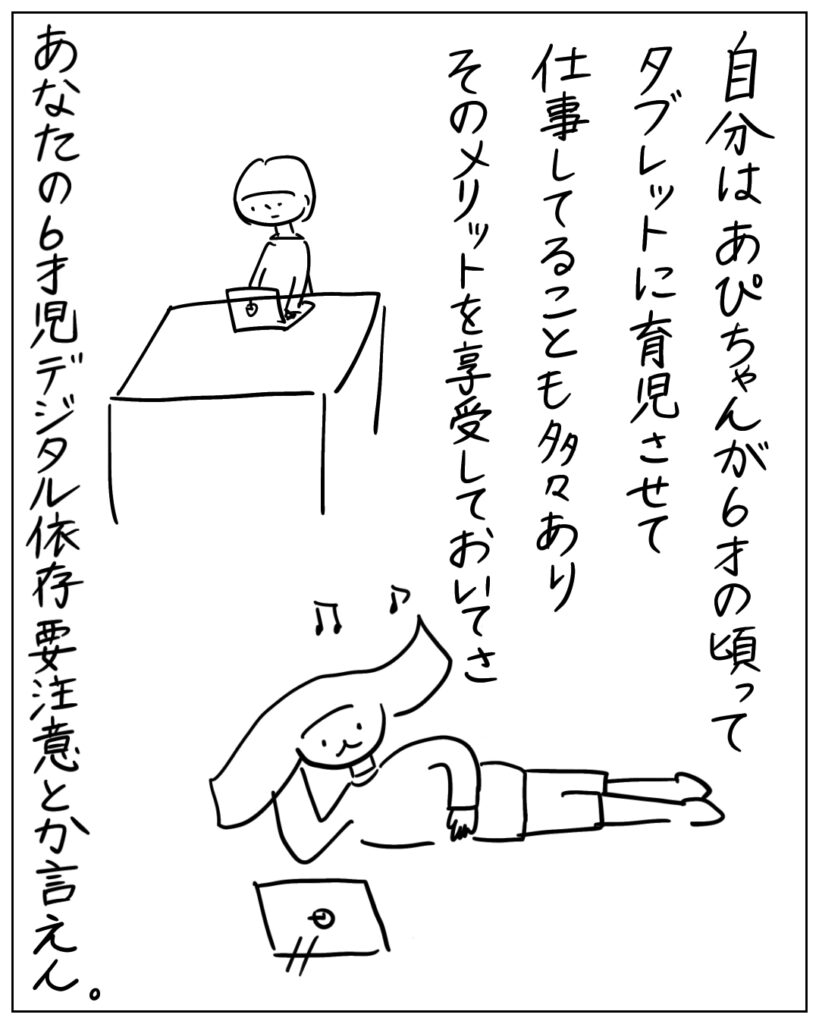 自分はあぴちゃんが6才の頃って
タブレットに育児させて
仕事してることも多々あり
そのメリットを享受しておいてさ
あなたの6才児デジタル依存要注意とか言えん。